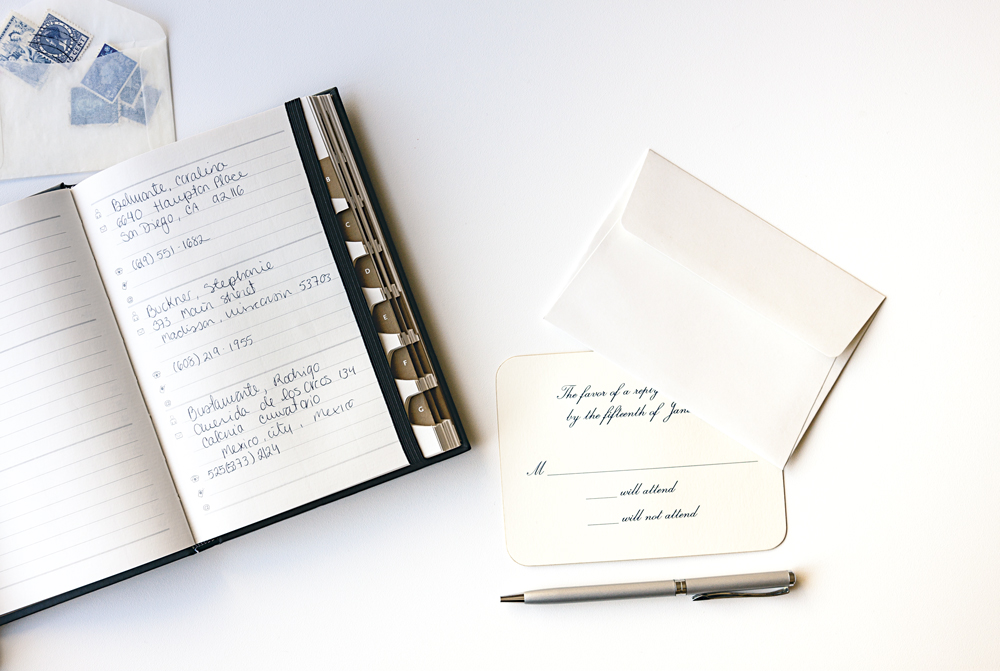 Belmonte, Coralina
6640 Hampton Place
San Diego, CA 92116
(619) 551-1682
Buckner, Stephanie
373 Main Street
Madison, Wisconsin 53703
(608) 219-1955
Bustamante, Rodrigo
Avenida de los Arcos 134
Colonia
Mexico, city, Mexico
525(5373) 2124
B
C
D
E
F
G
The favor of a reply
by the fifteenth of Jan
M
will attend
will not attend